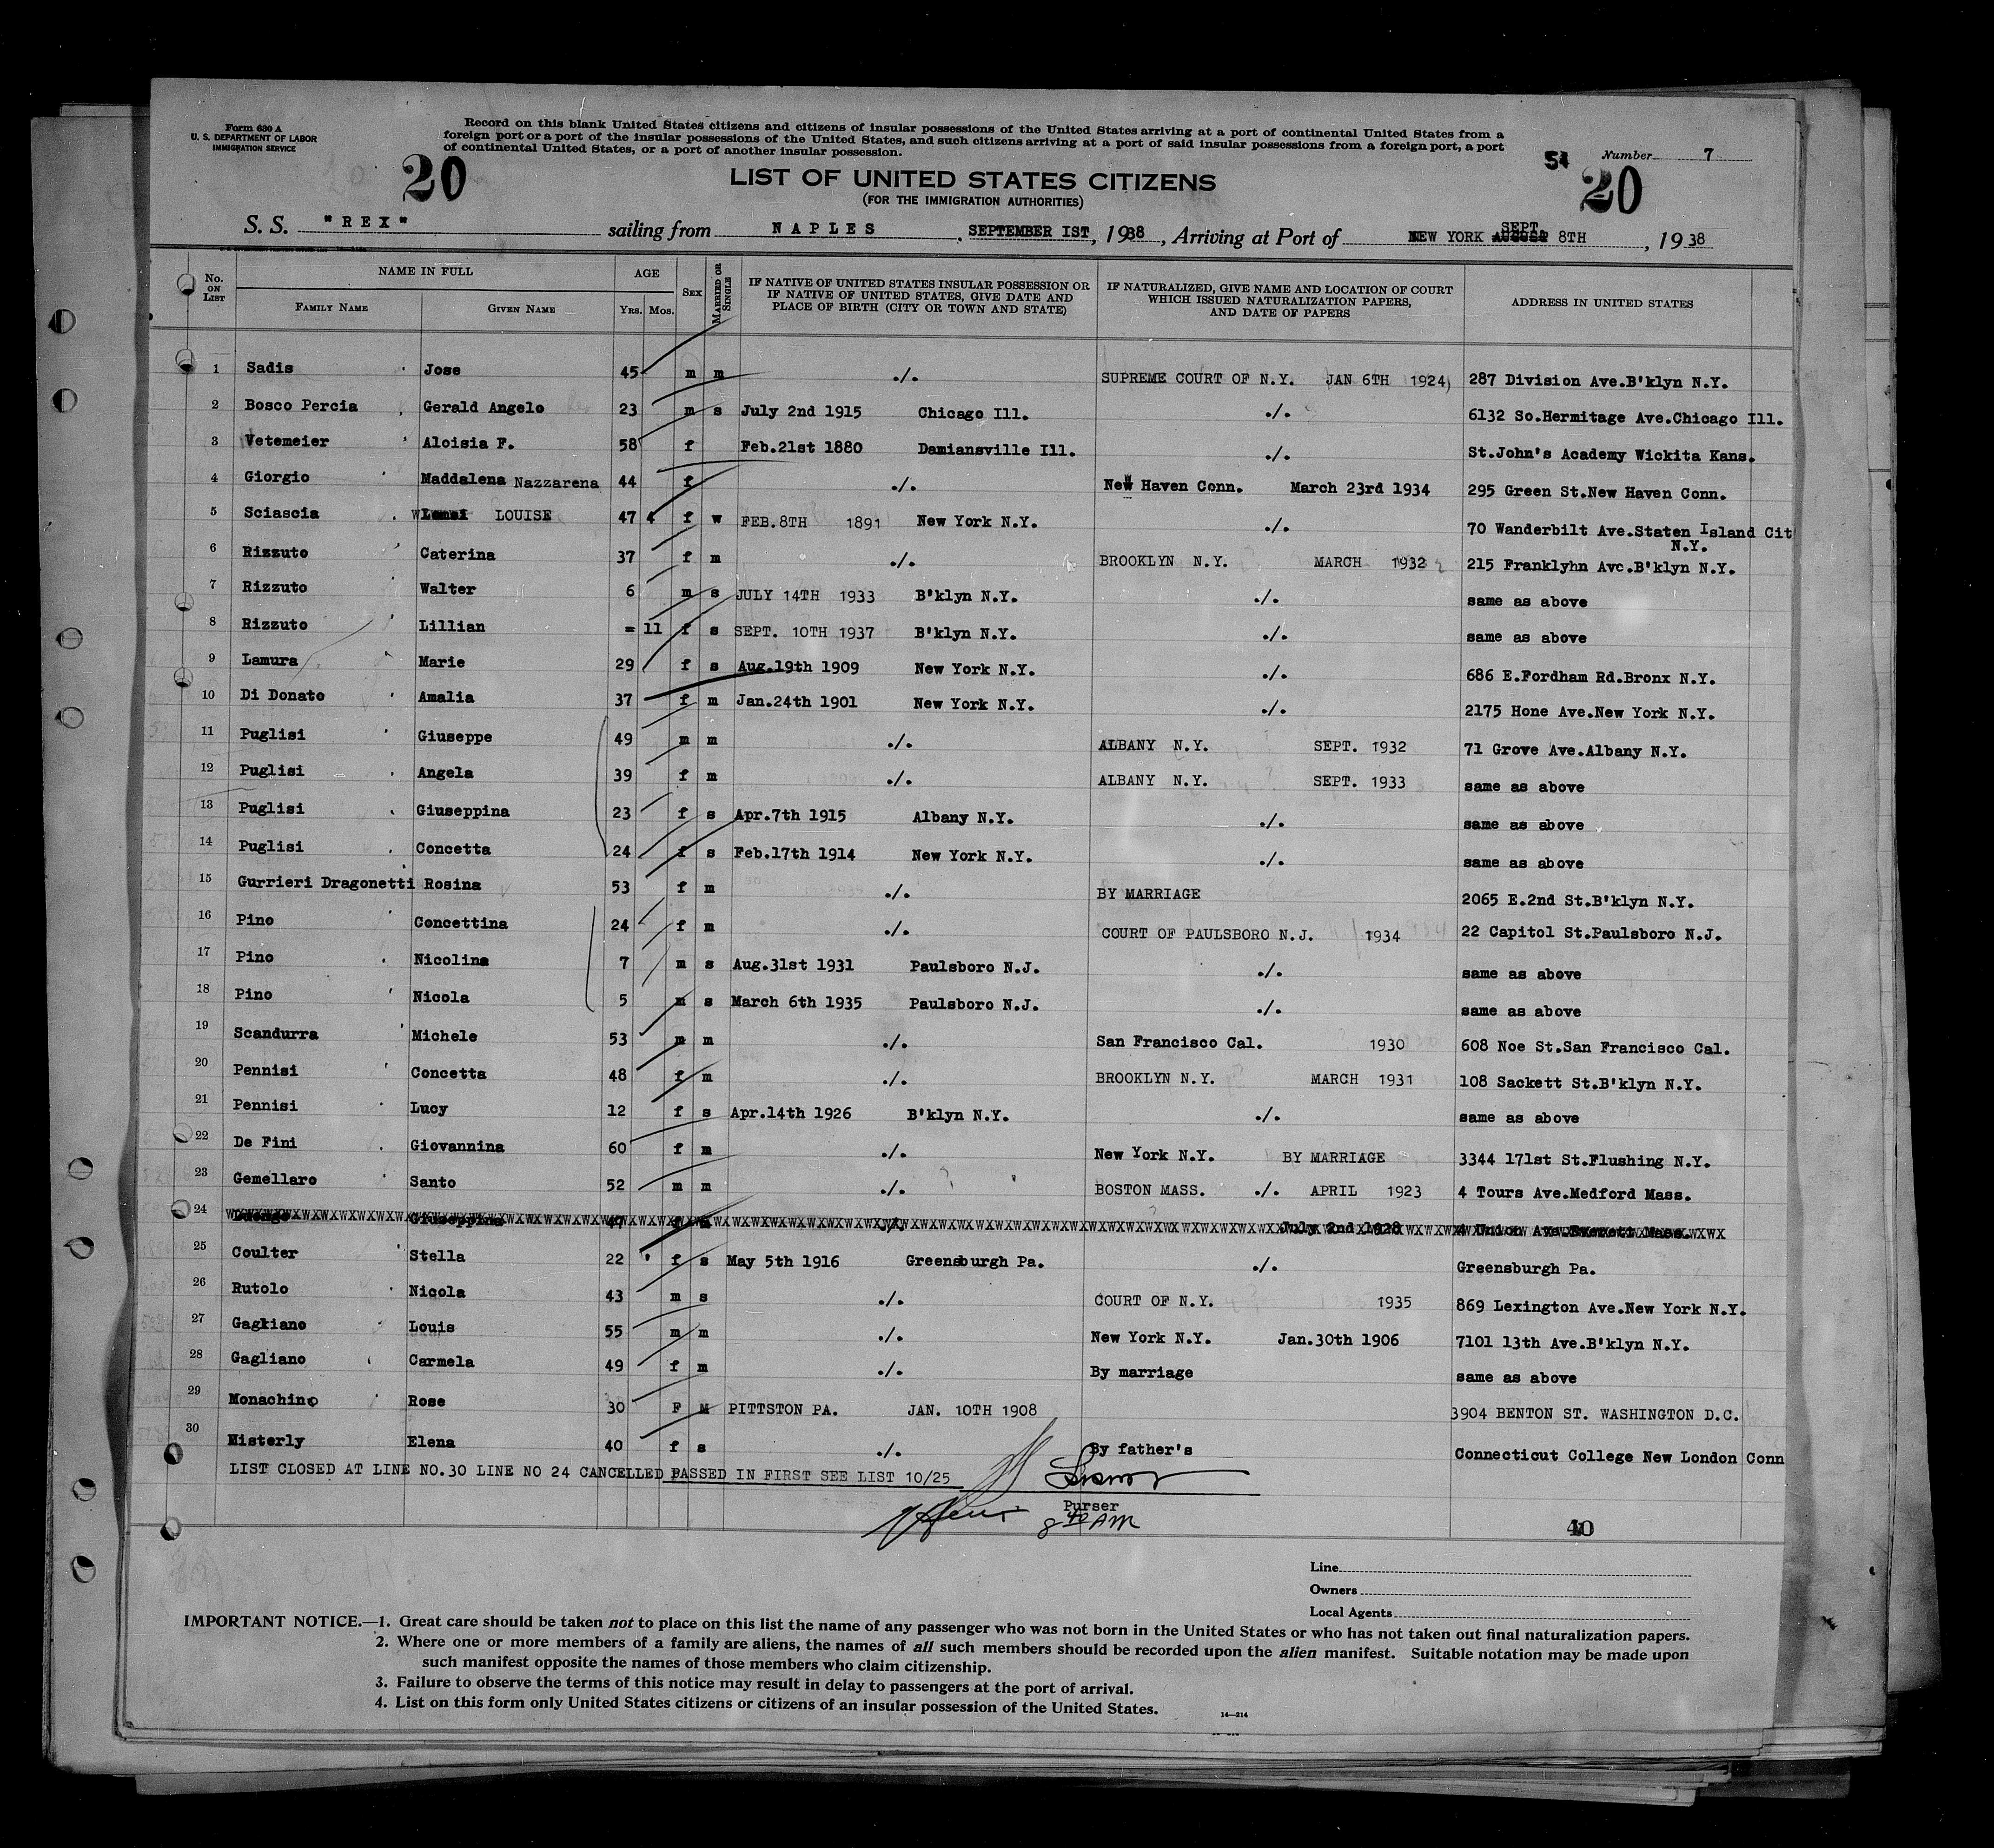 Form 630 A
U. S. DEPARTMENT OF LABOR
IMMIGRATION SERVICE
Record on this blank United States citizens and citizens of insular possessions of the United States arriving at a port of continental United States from a
foreign port or a port of the insular possessions of the United States, and such citizens arriving at a port of said insular possessions from a foreign port, a port
of continental United States, or a port of another insular possession.
20
Number 7
20
LIST OF UNITED STATES CITIZENS
(FOR THE IMMIGRATION AUTHORITIES)
S. S. "REX" sailing from NAPLES, SEPTEMBER IST, 1938, Arriving at Port of NEW YORK SEPT. 8TH, 1938
No. ON LIST NAME IN FULL FAMILY NAME GIVEN NAME AGE YRS. MOS. SEX MARRIED OR SINGLE IF NATIVE OF UNITED STATES INSULAR POSSESSION OR IF NATIVE OF UNITED STATES, GIVE DATE AND PLACE OF BIRTH (CITY OR TOWN AND STATE) IF NATURALIZED, GIVE NAME AND LOCATION OF COURT WHICH ISSUED NATURALIZATION PAPERS, AND DATE OF PAPERS ADDRESS IN UNITED STATES
1 Sadis Jose 45 m m ./. SUPREME COURT OF N.Y. JAN 6TH 1924) 287 Division Ave.B'klyn N.Y.
2 Bosco Percia Gerald Angelo 23 m s July 2nd 1915 Chicago Ill. ./. 6132 So.Hermitage Ave.Chicago Ill.
3 Vetemeier Aloisia F. 58 f Feb.21st 1880 Damiansville Ill. ./. St.John's Academy Wickita Kans.
4 Giorgio Maddalena Nazzarena 44 f ./. New Haven Conn. March 23rd 1934 295 Green St.New Haven Conn.
5 Sciascia LOUISE 47 4 f w FEB.8TH 1891 New York N.Y. ./. 70 Wanderbilt Ave.Staten Island Cit
N.Y.
6 Rizzuto Caterina 37 f m ./. BROOKLYN N.Y. MARCH 1932 215 Franklyhn Ave.B'klyn N.Y.
7 Rizzuto Walter 6 m s JULY 14TH 1933 B'klyn N.Y. ./. same as above
8 Rizzuto Lillian = 11 f s SEPT. 10TH 1937 B'klyn N.Y. ./. same as above
9 Lamura Marie 29 f s Aug.19th 1909 New York N.Y. ./. 686 E.Fordham Rd.Bronx N.Y.
10 Di Donato Amalia 37 f m Jan.24th 1901 New York N.Y. ./. 2175 Hone Ave.New York N.Y.
11 Puglisi Giuseppe 49 m m ./. ALBANY N.Y. SEPT. 1932 71 Grove Ave.Albany N.Y.
12 Puglisi Angela 39 f m ./. ALBANY N.Y. SEPT. 1933 same as above
13 Puglisi Giuseppina 23 f s Apr.7th 1915 Albany N.Y. ./. same as above
14 Puglisi Concetta 24 f s Feb.17th 1914 New York N.Y. ./. same as above
15 Gurrieri Dragonetti Rosina 53 f m ./. BY MARRIAGE 2065 E.2nd St.B'klyn N.Y.
16 Pino Concettina 24 f m ./. COURT OF PAULSBORO N.J. 1934 22 Capitol St.Paulsboro N.J.
17 Pino Nicolina 7 m s Aug.31st 1931 Paulsboro N.J. ./. same as above
18 Pino Nicola 5 m s March 6th 1935 Paulsboro N.J. ./. same as above
19 Scandurra Michele 53 m m ./. San Francisco Cal. 1930 608 Noe St.San Francisco Cal.
20 Pennisi Concetta 48 f m ./. BROOKLYN N.Y. MARCH 1931 108 Sackett St.B'klyn N.Y.
21 Pennisi Lucy 12 f s Apr.14th 1926 B'klyn N.Y. ./. same as above
22 De Fini Giovannina 60 f m ./. New York N.Y. BY MARRIAGE 3344 171st St.Flushing N.Y.
23 Gemellaro Santo 52 m m ./. BOSTON MASS. ./. APRIL 1923 4 Tours Ave.Medford Mass.
24 Giuseppina 47 July 2nd 1928 4 Union Ave.Everett Mass.
25 Coulter Stella 22 f s May 5th 1916 Greensburgh Pa. ./. Greensburgh Pa.
26 Rutolo Nicola 43 m s ./. COURT OF N.Y. 1935 869 Lexington Ave.New York N.Y.
27 Gagliano Louis 55 m m ./. New York N.Y. Jan.30th 1906 7101 13th Ave.B'klyn N.Y.
28 Gagliano Carmela 49 f m ./. By marriage same as above
29 Monachino Rose 30 F M PITTSTON PA. JAN. 10TH 1908 3904 BENTON ST. WASHINGTON D.C.
30 Misterly Elena 40 f s ./. By father's Connecticut College New London Conn
LIST CLOSED AT LINE NO.30 LINE NO 24 CANCELLED PASSED IN FIRST SEE LIST 10/25
Purser
8 40 AM
40
Line
Owners
Local Agents
IMPORTANT NOTICE.—1. Great care should be taken not to place on this list the name of any passenger who was not born in the United States or who has not taken out final naturalization papers.
2. Where one or more members of a family are aliens, the names of all such members should be recorded upon the alien manifest. Suitable notation may be made upon
such manifest opposite the names of those members who claim citizenship.
3. Failure to observe the terms of this notice may result in delay to passengers at the port of arrival.
4. List on this form only United States citizens or citizens of an insular possession of the United States.
14—214